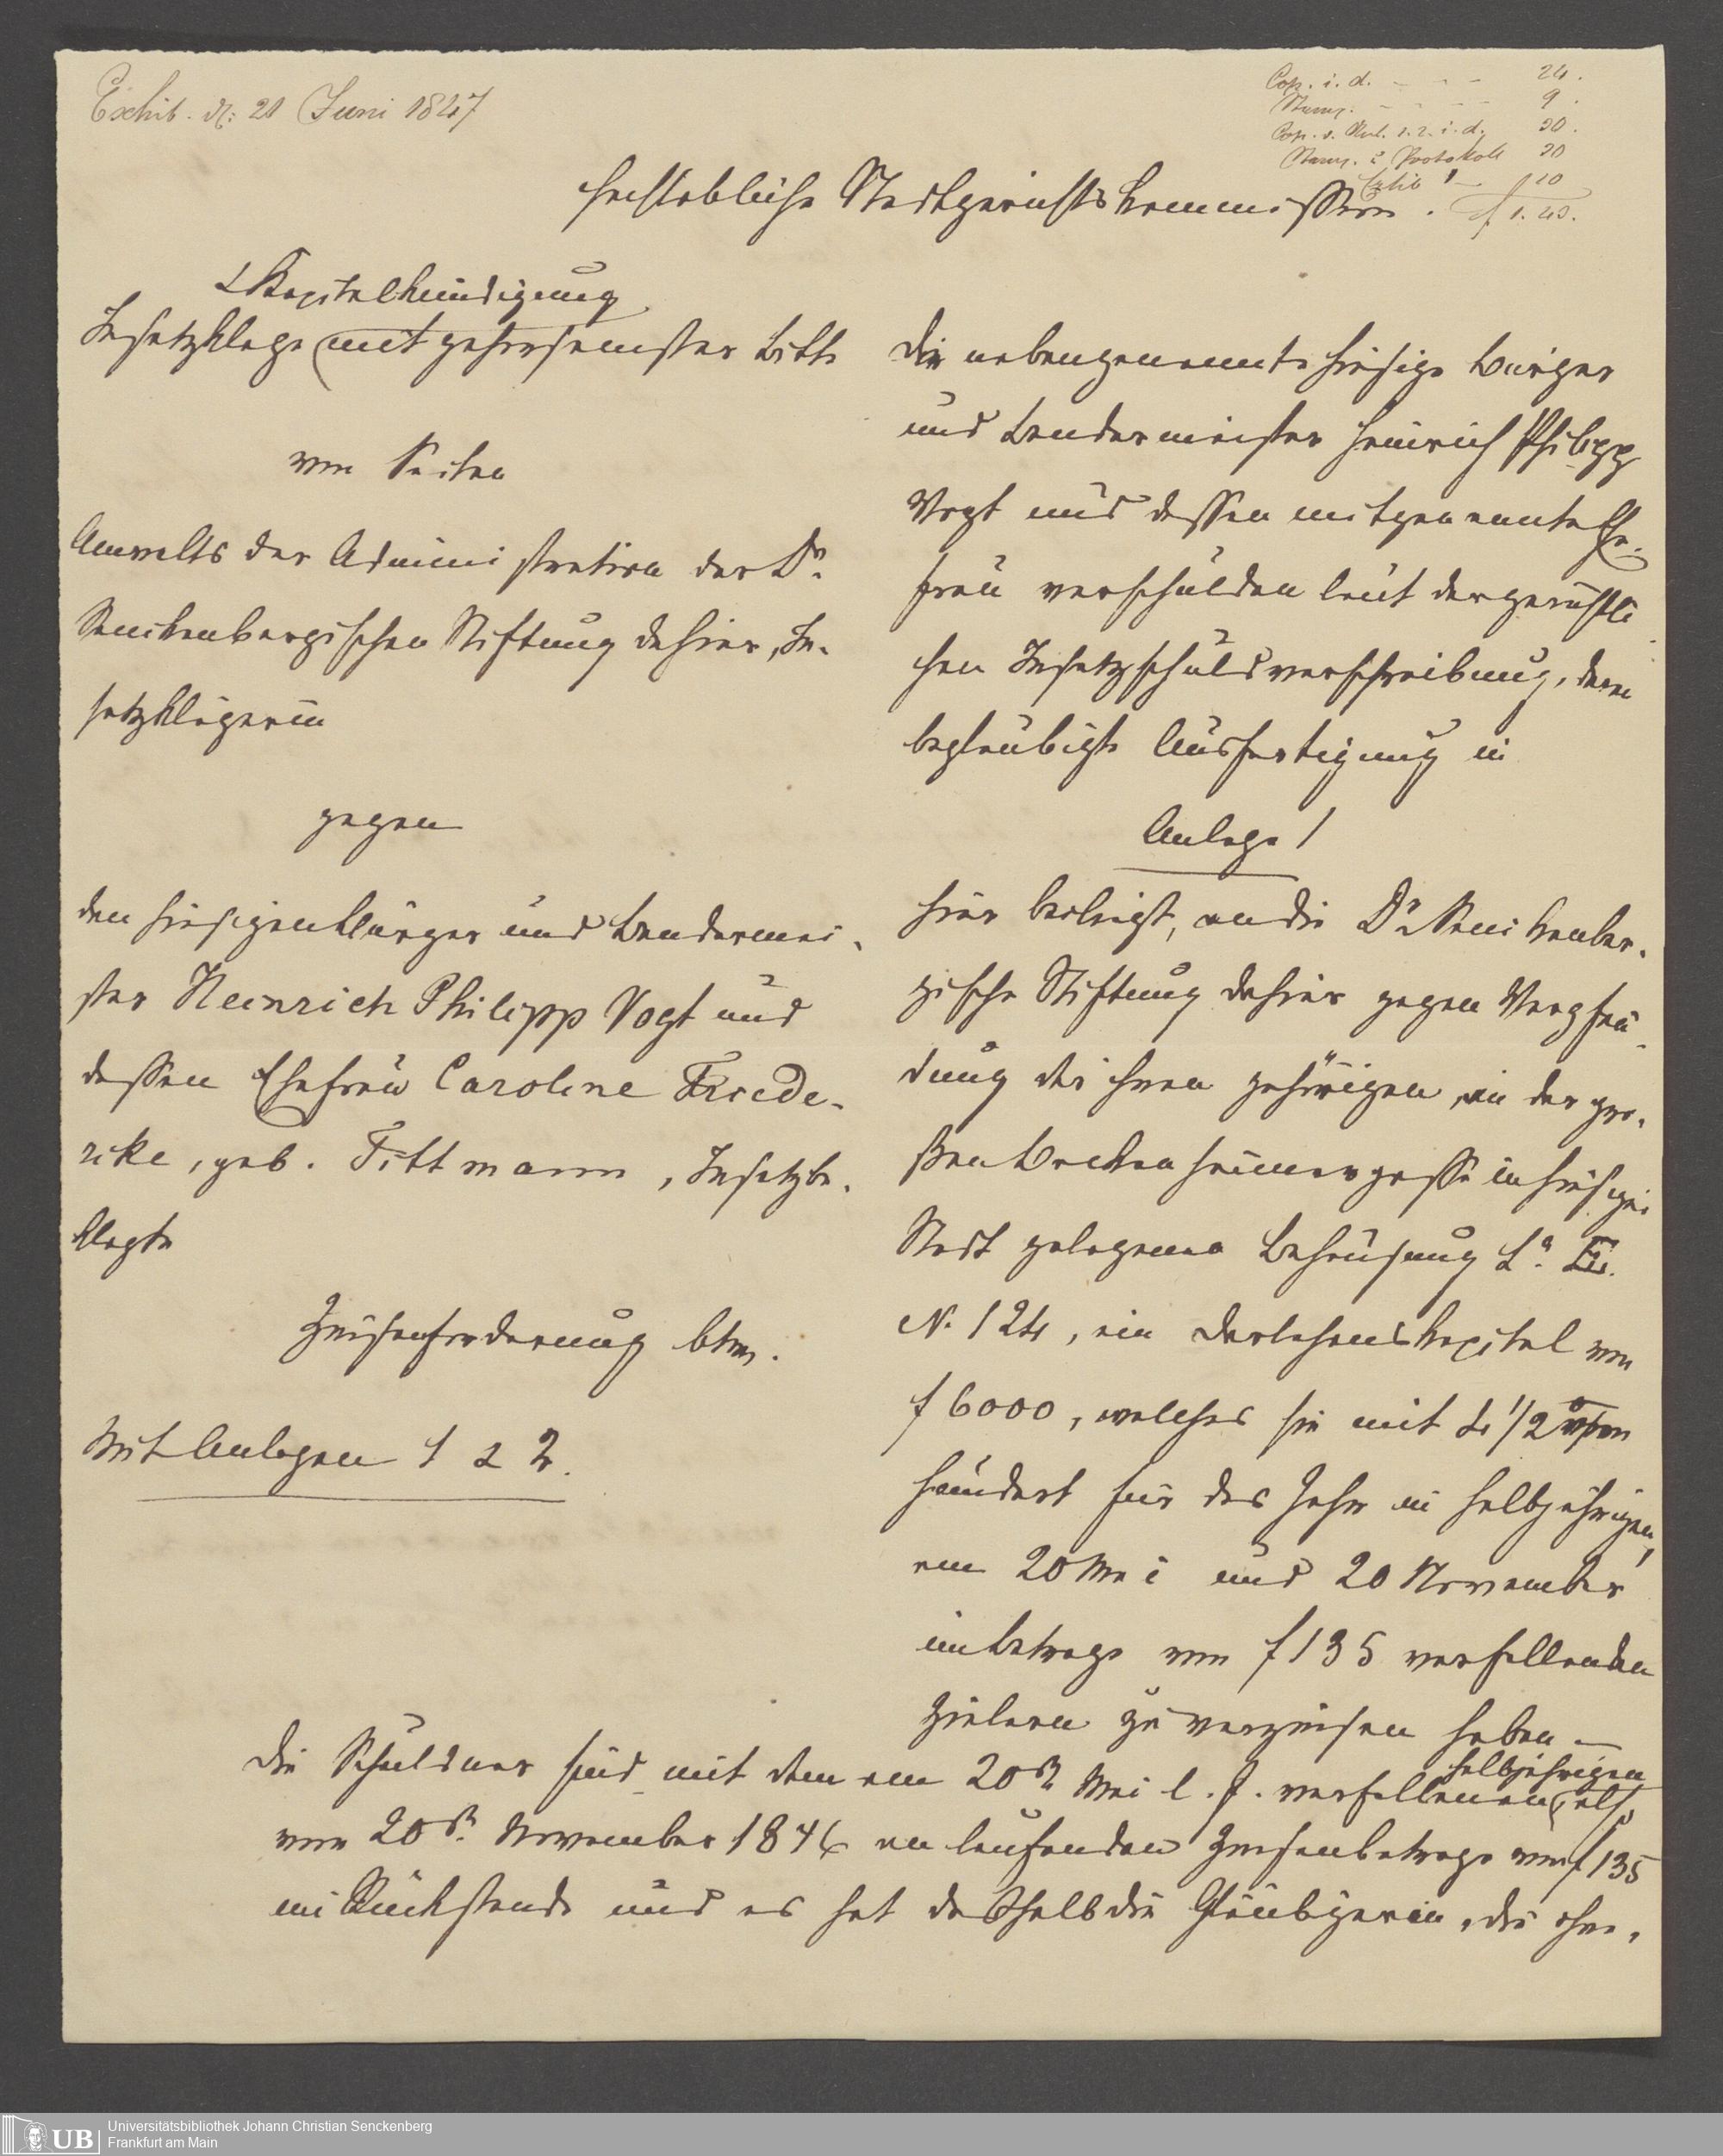 Exhib. d. 21 Juni 1847
Cop. i. d. - - - 24.
Stemp. - - - - 9.
Cop. v. Anl. 1. 2. i. d. 30.
Stemp. u Protokoll 30
Exhib 1 - 10
f 1. 43.
Hochlöbliche Stadtgerichtskommission.
& Kapitalkündigung
Insatzklage mit gehorsamster Bitte
von Seiten
Anwalts der Administration der Dr.
Senckenbergischen Stiftung dahier, In-
satzklägerin
gegen
den hiesigen Bürger und Bendermei-
ster Heinrich Philipp Vogt und
dessen Ehefrau Caroline Friede-
rike, geb. Tittmann, Insatzbe-
klagte
Zinsenforderung btr.
Mit Anlagen 1 & 2.
Die nebengenannte hiesige Bürger
und Bendermeister Heinrich Philipp
Vogt und dessen mitgenannte Ehe-
frau verschulden laut der gerichtli-
chen Insatzschuldverschreibung, deren
beglaubigte Ausfertigung in
Anlage 1
hier beiliegt, an die Dr. Senckenber-
gische Stiftung dahier gegen Verpfän-
dung der ihnen gehörigen, in der gro-
ßen Bockenheimergasse in hiesiger
Stadt gelegenen Behausung La.
N. 124, ein Darlehenskapital von
f 6000, welches sie mit 4 1/2 vom
hundert für das Jahr in halbjährigen,
am 20 Mai und 20 November
im Betrage von f 135 verfallenden
Zielern zu verzinsen haben -
Die Schuldner sind mit dem am 20ten Mai l. J. verfallenen, halbjährigen also
vom 20ten November 1846 an laufenden Zinsenbetrage von f 135
im Rückstande und es hat deßhalb die Gläubigerin, die ohne-
Universitätsbibliothek Johann Christian Senckenberg
Frankfurt am Main
UB